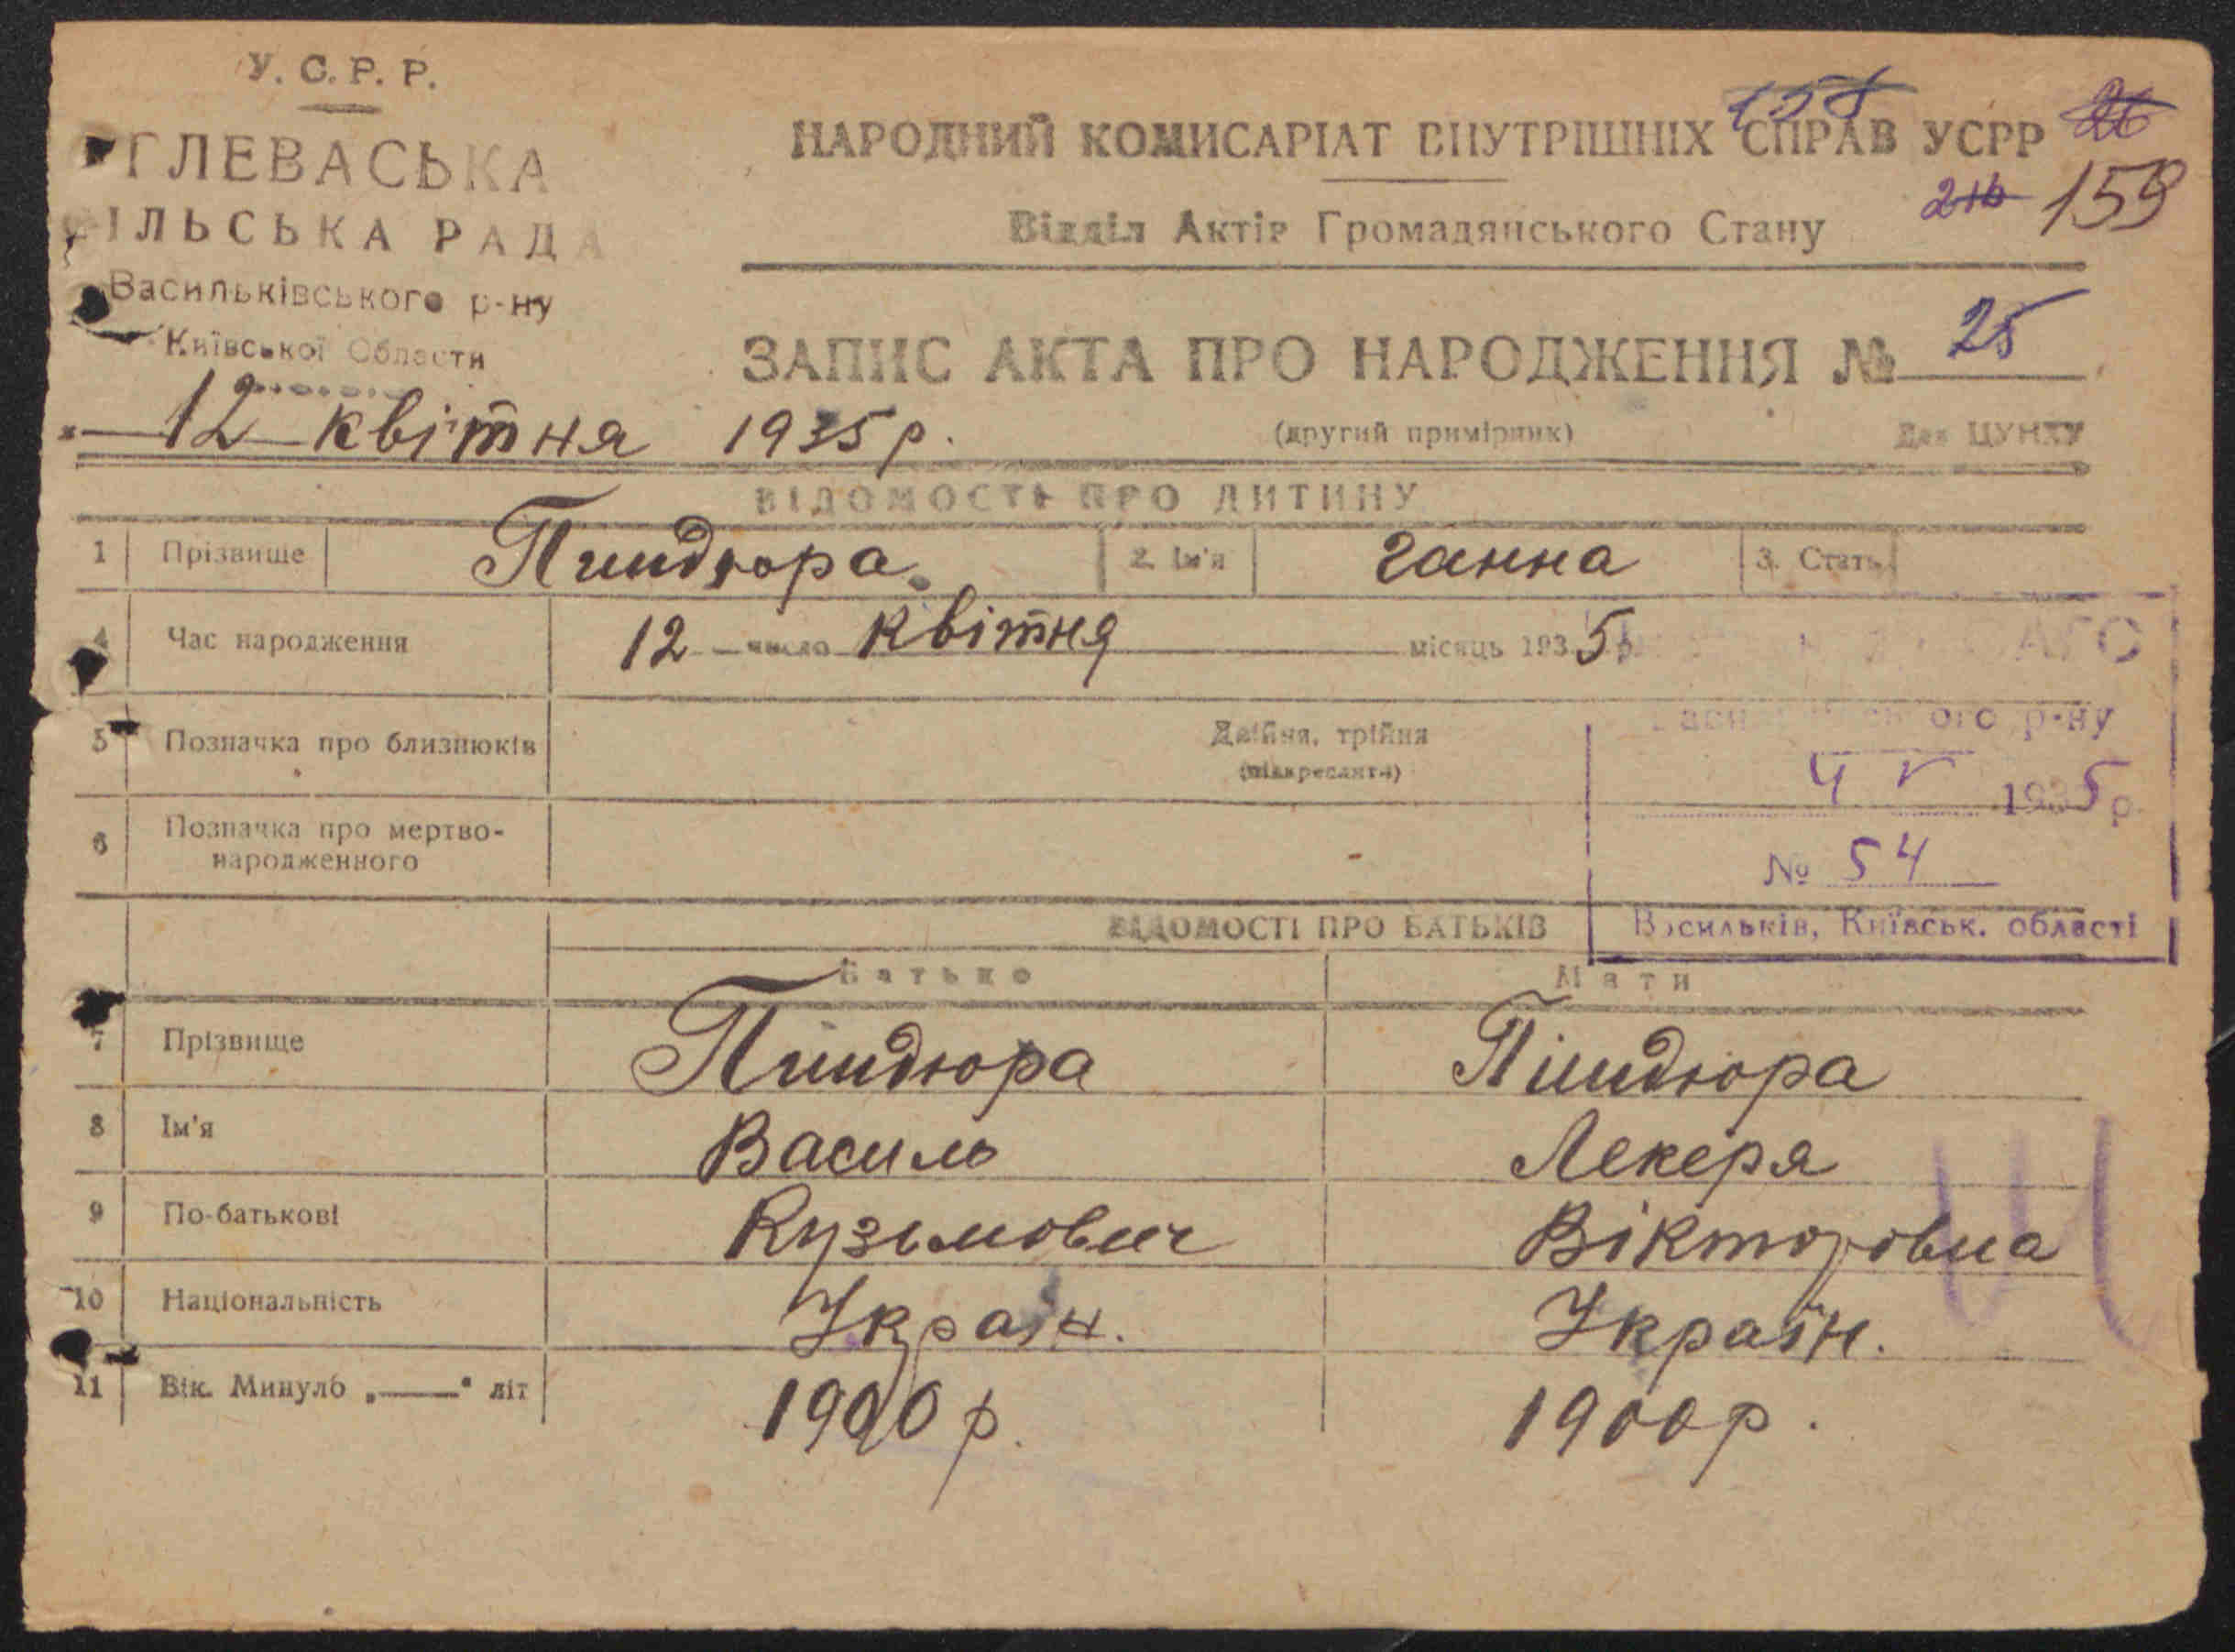 У. С. Р. Р.
ГЛЕВАСЬКА
СІЛЬСЬКА РАДА
Васильківського р-ну
Київської Области
12 квітня 1935 р.
158
НАРОДНИЙ КОМИСАРІАТ ВНУТРІШНІХ СПРАВ УСРР 26
216 159
Відділ Актів Громадянського Стану
ЗАПИС АКТА ПРО НАРОДЖЕННЯ № 25
(другий примірник) Для ЦУНХУ
ВІДОМОСТІ ПРО ДИТИНУ
1 Прізвище Пиндюра 2. Ім'я Ганна 3. Стать
4 Час народження 12 число квітня місяць 1935 р.
АГС
5 Позначка про близнюків Двійня, трійня
(підкреслити)
Васильківського р-ну
4 V 1935 р.
6 Позначка про мертво-
народженного
№ 54
Васильків, Київськ. області
ВІДОМОСТІ ПРО БАТЬКІВ
Батько Мати
7 Прізвище Пиндюра Пиндюра
8 Ім'я Василь Лекеря
9 По-батькові Кузьмович Вікторовна
10 Національність Україн. Україн.
11 Вік. Минуло „——“ літ 1900 р. 1900 р.